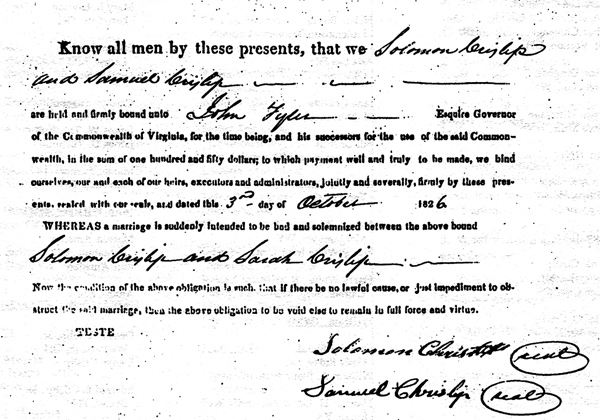 Know all men by these presents, that we Solomon Crislip
and Samuel Crislip
are held and firmly bound unto John Tyler Esquire Governor
of the Commonwealth of Virginia, for the time being, and his successors for the use of the said Common-
wealth, in the sum of one hundred and fifty dollars; to which payment well and truly to be made, we bind
ourselves, our and each of our heirs, executors and administrators, jointly and severally, firmly by these pres-
ents, sealed with our seals, and dated this 3rd day of October 1826
WHEREAS a marriage is suddenly intended to be had and solemnized between the above bound
Solomon Crislip and Sarah Crislip
Now the condition of the above obligation is such, that if there be no lawful cause, or just impediment to ob-
struct the said marriage, then the above obligation to be void else to remain in full force and virtue.
TESTE
Solomon seal
Samuel Chrislip seal